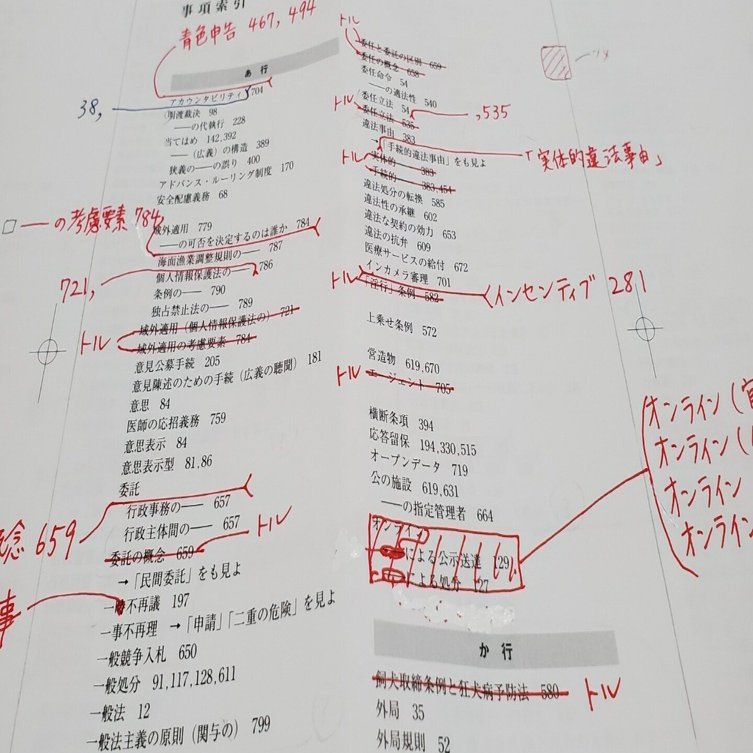 事項索引
青色申告 467, 494
あ行
アカウンタビリティ 704
38,
明渡裁決 98
――の代執行 228
当てはめ 142,392
――(広義)の構造 389
狭義の――の誤り 400
アドバンス・ルーリング制度 170
安全配慮義務 68
□――の考慮要素 784
域外適用 779
――の可否を決定するのは誰か 784
海面漁業調整規則の―― 787
721,
個人情報保護法の―― 786
条例の―― 790
独占禁止法の―― 789
域外適用(個人情報保護法の) 721
トル
域外適用の考慮要素 784
意見公募手続 205
意見陳述のための手続(広義の聴聞) 181
意思 84
医師の応招義務 759
意思表示 84
意思表示型 81,86
委託
行政事務の―― 657
念 659
行政主体間の―― 657
トル
委託の概念 659
→「民間委託」をも見よ
事
一事不再議 197
一事不再理 →「申請」「二重の危険」を見よ
一般競争入札 650
一般処分 91,117,128,611
一般法 12
一般法主義の原則(関与の) 799
トル
委任と委託の区別 659
委任の概念 658
委任命令 54
――の適法性 540
トル
委任立法 54
, 535
委任立法 535
違法事由 383
→「手続的違法事由」をも見よ
「実体的違法事由」
トル
実体的―― 383
手続的―― 383,454
違法処分の転換 585
違法性の承継 602
違法な契約の効力 653
違法の抗弁 609
医療サービスの給付 672
インカメラ審理 701
トル
「淫行」条例 582
インセンティブ 281
上乗せ条例 572
営造物 619,670
トル
エージェント 705
横断条項 394
応答留保 194,330,515
オープンデータ 719
公の施設 619,631
――の指定管理者 664
オンライン
による公示送達 129
による処分 127
オンライン(
オンライン(
オンライン
オンライン
か行
飼犬取締条例と狂犬病予防法 580
トル
外局 35
外局規則 52